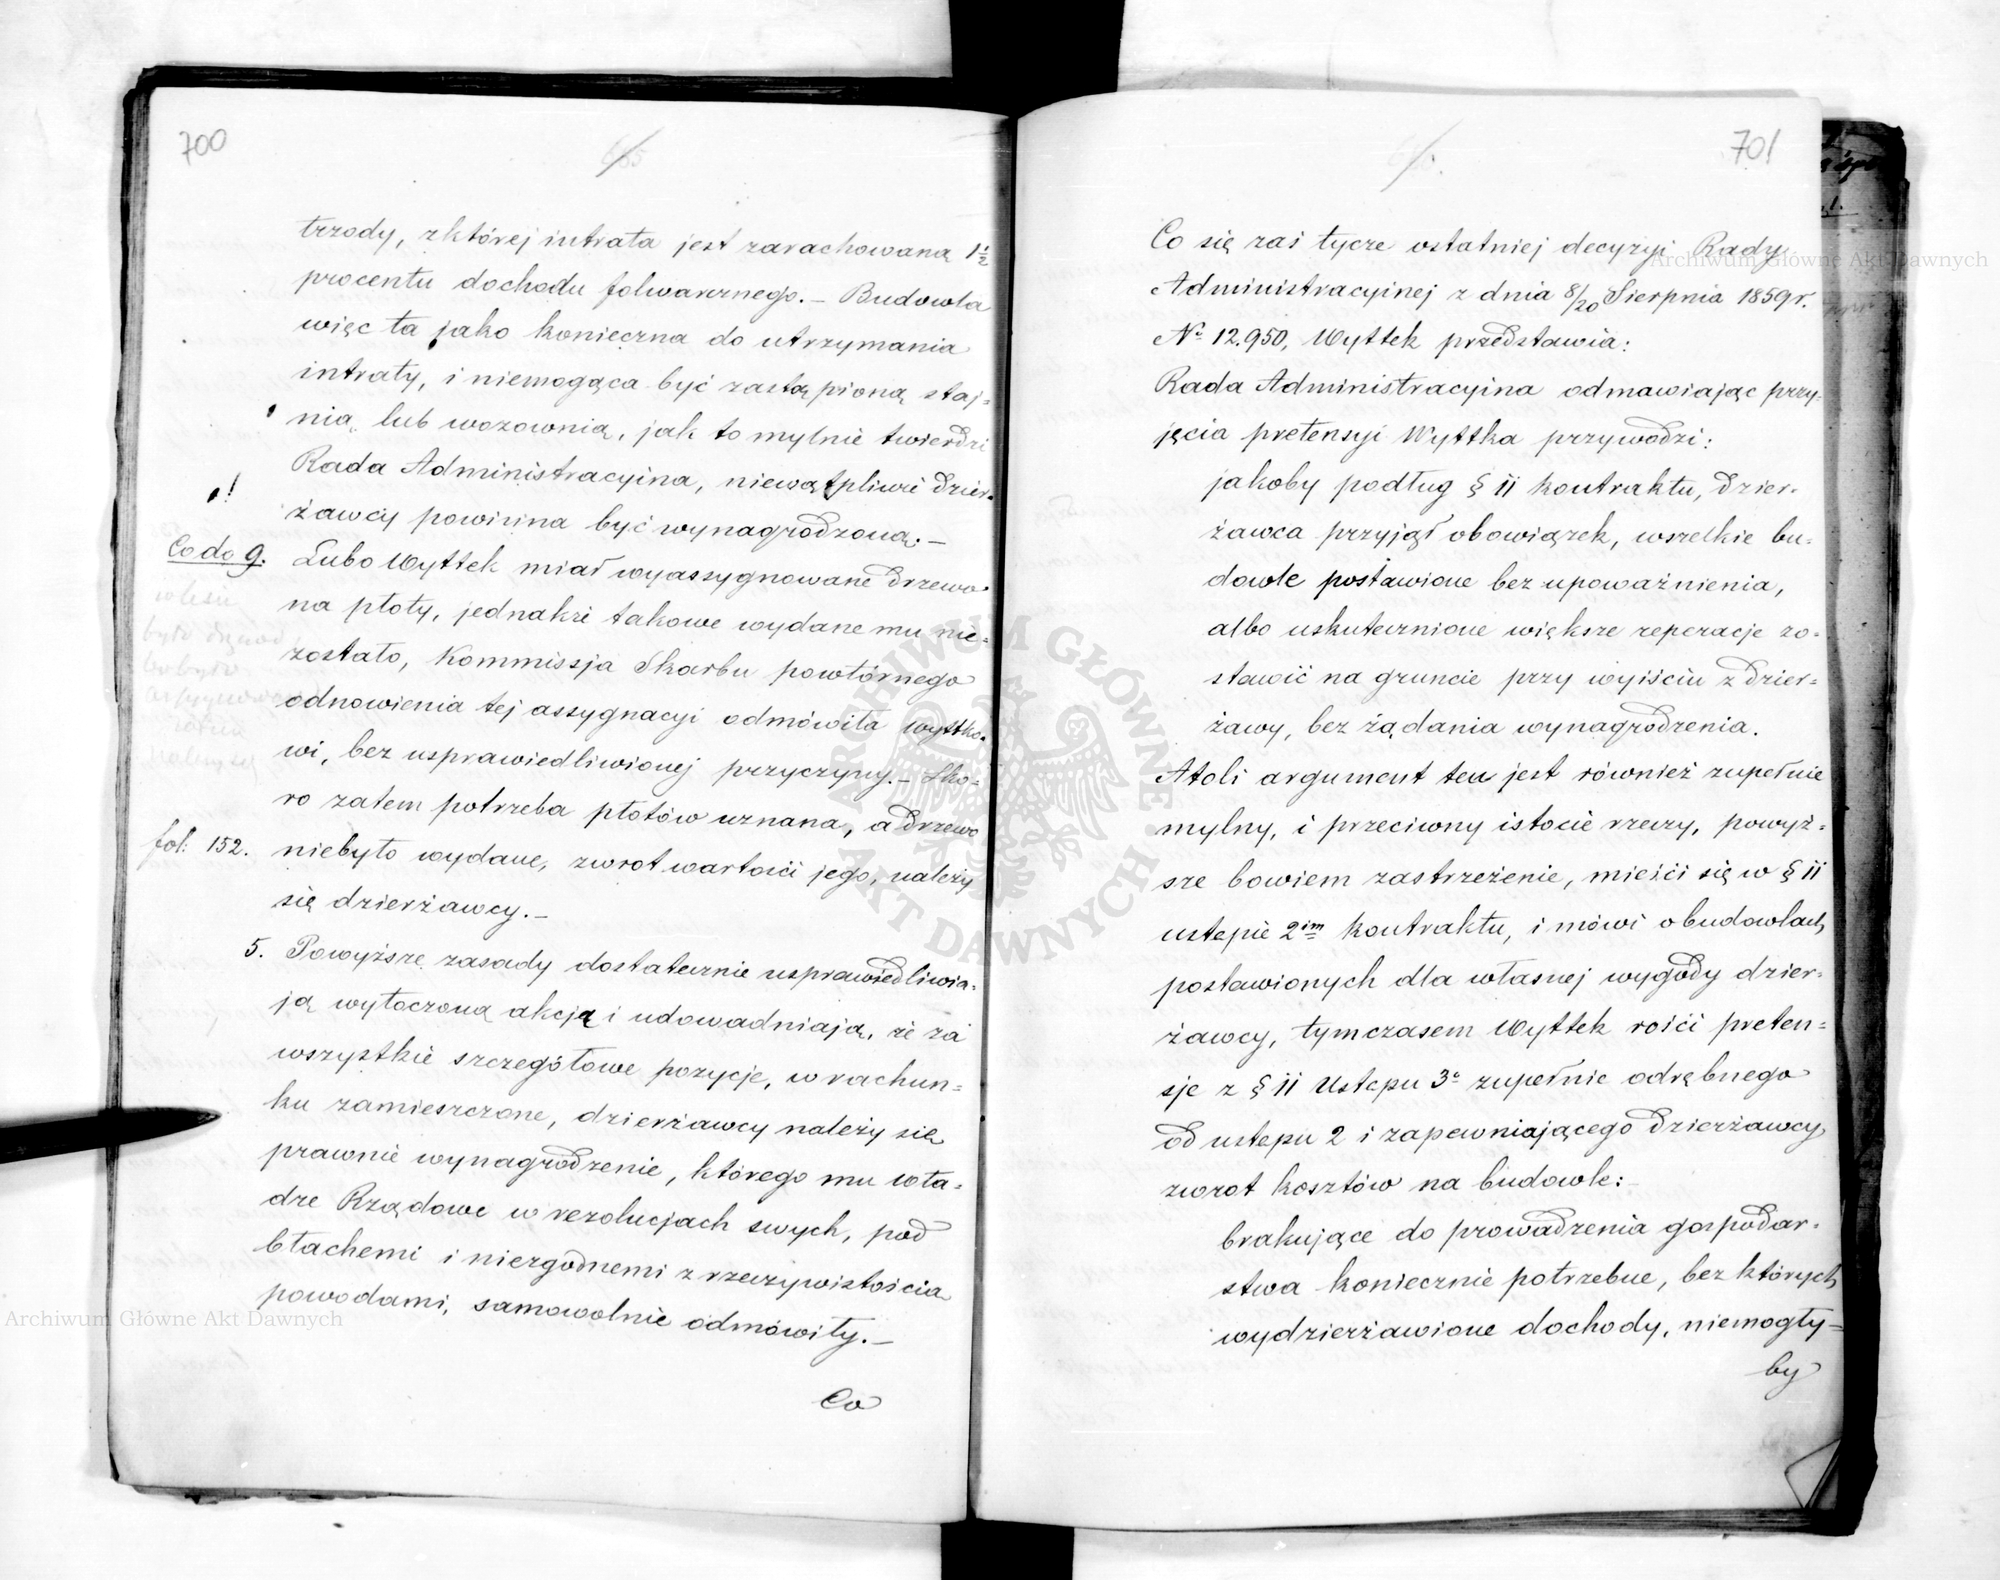 700
trzody, z której intrata jest zarachowaną 1½
procentu dochodu folwarcznego. – Budowla
więc ta jako konieczna do utrzymania
intraty, i niemogąca być zastąpioną staj=
nią, lub wozownią, jak to mylnie twierdzi
Rada Administracyina, niewątpliwie dzier=
żawcy powinna być wynagrodzoną. –
Co do 9. Lubo Wyttek miał wyassygnowane drzewo
na płoty, jednakże takowe wydane mu nie=
zostało, Kommissja Skarbu powtórnego
odnowienia tej assygnacyi odmówiła Wyttko=
wi, bez usprawiedliwionej przyczyny. – Sko=
ro zatem potrzeba płotów uznana, a drzewo
fol: 152. niebyło wydane, zwrot wartości jego, należy
się dzierżawcy. –
5. Powyższe zasady dostatecznie usprawiedliwia=
ją wytoczoną akcją i udowadniają, że za
wszystkie szczegółowe pozycje, w rachun=
ku zamieszczone, dzierżawcy należy się
prawnie wynagrodzenie, którego mu wła=
dze Rządowe w rezolucjach swych, pod
błachemi i niezgodnemi z rzeczywistością
powodami, samowolnie odmówiły. –
Co
701
Co się zaś tycze ostatniej decyzyi Rady
Administracyinej z dnia 8/20 Sierpnia 1859 r.
No 12.950, Wyttek przedstawia:
Rada Administracyina odmawiając przy=
jęcia pretensyi Wyttka przywodzi:
jakoby podług § 11 kontraktu, dzier=
żawca przyjął obowiązek, wszelkie bu=
dowle postawione bez upoważnienia,
albo uskutecznione większe reperacje zo=
stawić na gruncie przy wyiściu z dzier=
żawy, bez żądania wynagrodzenia.
Atoli argument ten jest również zupełnie
mylny, i przeciwny istocie rzeczy, powyż=
sze bowiem zastrzeżenie, mieści się w § 11
ustępie 2im kontraktu, i mówi o budowlach
postawionych dla własnej wygody dzier=
żawcy, tymczasem Wyttek rości preten=
sje z § 11 Ustępu 3o zupełnie odrębnego
od ustępu 2 i zapewniającego dzierżawcy
zwrot kosztów na budowle:
brakujące do prowadzenia gospodar=
stwa koniecznie potrzebne, bez których
wydzierżawione dochody, niemogły=
by
Archiwum Główne Akt Dawnych
Archiwum Główne Akt Dawnych
ARCHIWUM GŁÓWNE AKT DAWNYCH